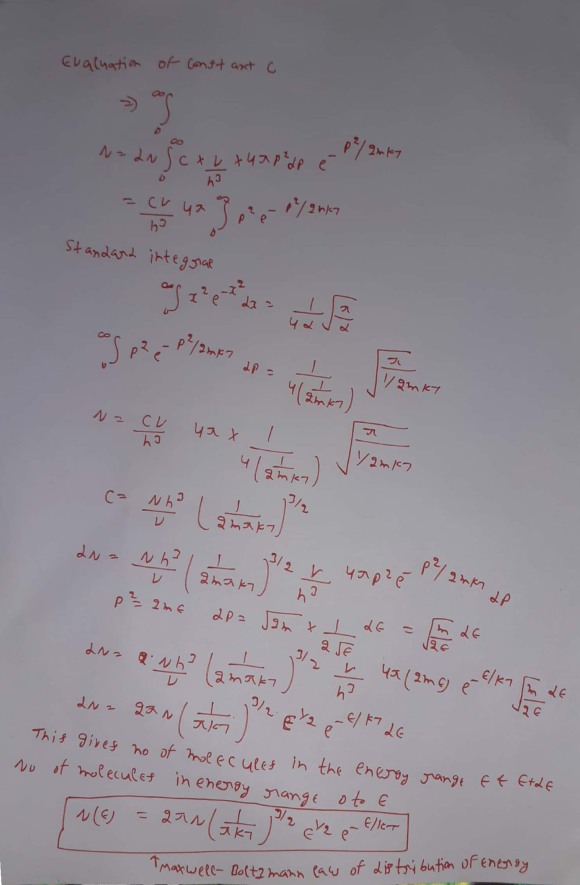 Evaluation of constant C
⇒ ∞∫0
N = dN ∞∫0 C × V/h³ × 4πp²dp e^(-p²/2mkT)
= CV/h³ 4π ∞∫0 p² e^(-p²/2mkT)
Standard integral
∞∫0 x² e^(-x²) dx = 1/4α √(π/α)
∞∫0 p² e^(-p²/2mkT) dp = 1/(4(1/2mkT)) √(π/(1/2mkT))
N = CV/h³ 4π × 1/(4(1/2mkT)) √(π/(1/2mkT))
C = Nh³/V (1/2mπkT)^(3/2)
dN = Nh³/V (1/2mπkT)^(3/2) V/h³ 4πp² e^(-p²/2mkT) dp
p² = 2mϵ dp = √2m × 1/(2√ϵ) dϵ = √(m/2ϵ) dϵ
dN = Nh³/V (1/2mπkT)^(3/2) V/h³ 4π(2mϵ) e^(-ϵ/kT) √(m/2ϵ) dϵ
dN = 2πN (1/πkT)^(3/2) ϵ^(1/2) e^(-ϵ/kT) dϵ
This gives no of molecules in the energy range ϵ & ϵ+dϵ
No of molecules in energy range 0 to ϵ
N(ϵ) = 2πN (1/πkT)^(3/2) ϵ^(1/2) e^(-ϵ/kT)
↑Maxwell-Boltzmann law of distribution of energy